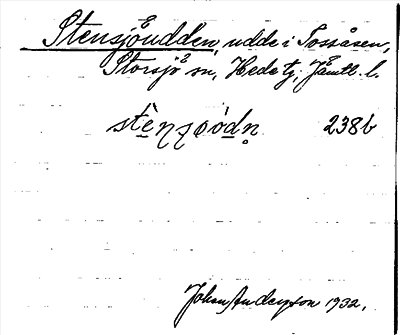 Stensjöudden, udde i Tossåsen,
Storsjö sn, Hede tg, Jämtl. l.
238b
John Anderson 1932.